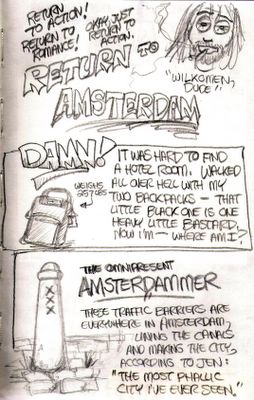 RETURN
TO ACTION!
RETURN TO
ROMANCE!
OKAY, JUST
RETURN TO
ACTION.
RETURN TO
AMSTERDAM
"WILKOMEN,
DUDE"
DAMN!
IT WAS HARD TO FIND
A HOTEL ROOM. WALKED
ALL OVER HELL WITH MY
TWO BACKPACKS — THAT
LITTLE BLACK ONE IS ONE
HEAVY LITTLE BASTARD.
NOW I'M — WHERE AM I?
WEIGHS
257 LBS
THE OMNIPRESENT
AMSTERDAMMER
THESE TRAFFIC BARRIERS ARE
EVERYWHERE IN AMSTERDAM,
LINING THE CANALS
AND MAKING THE CITY,
ACCORDING TO JEN:
"THE MOST PHALLIC
CITY I'VE EVER SEEN."
XXX